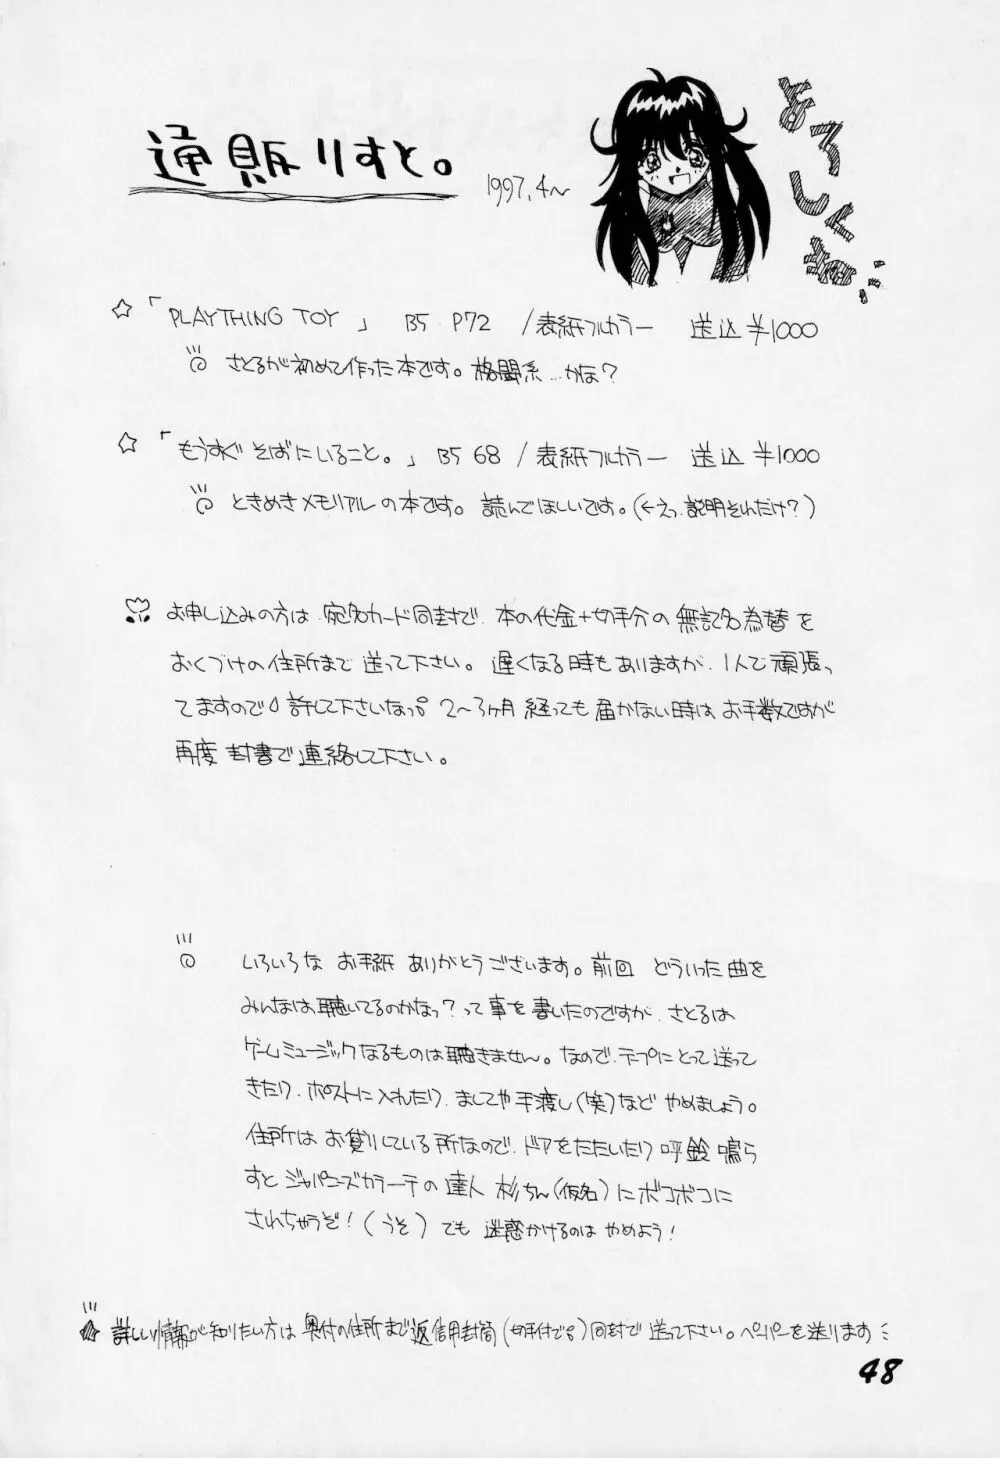 通販りすと。
1997.4〜
よろしくね…
☆「PLAYTHING TOY」 B5 P72 /表紙フルカラー 送込¥1000
さとるが初めて作った本です。格闘系…かな?
☆「もうすぐそばにいること。」B5 68 /表紙フルカラー 送込¥1000
ときめきメモリアルの本です。読んでほしいです。(←えっ.説明それだけ?)
お申し込みの方は.宛名カード同封で.本の代金+切手分の無記名為替を
おくづけの住所まで送って下さい。遅くなる時もありますが.1人で頑張っ
てますので許して下さいなっ。2〜3ヶ月経っても届かない時はお手数ですが
再度封書で連絡して下さい。
いろいろなお手紙ありがとうございます。前回どういった曲を
みんなは聴いてるのかなっ?って事を書いたのですが.さとるは
ゲームミュージックなるものは聴きません。なので.テープにとって送って
きたり.ポストに入れたり.ましてや手渡し(笑)などやめましょう。
住所はお貸りしている所なので.ドアをたたいたり呼鈴鳴ら
すとジャパニーズカラーテの達人杉ちん(仮名)にボコボコに
されちゃうぞ!(うそ)でも迷惑かけるのはやめよう!
詳しい情報が知りたい方は奥付の住所まで返信用封筒(切手付でね)同封で送って下さい。ペーパーを送ります…
48